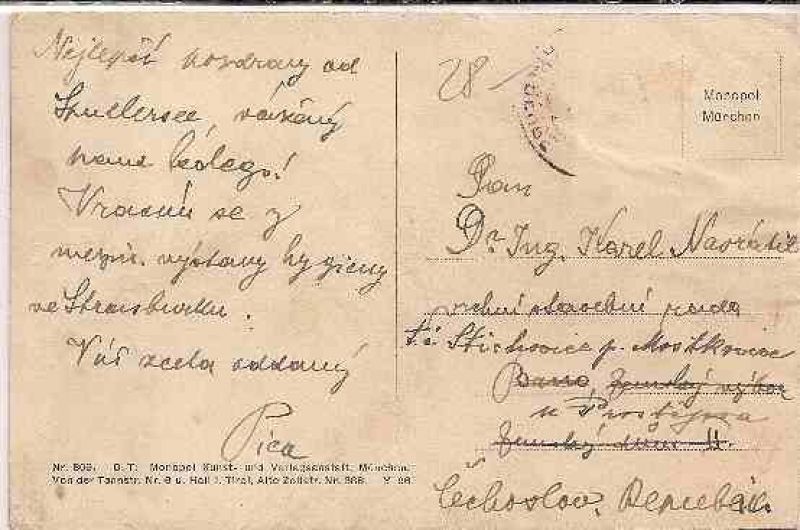 Nejlepší pozdravy od
vážený
pane kolego!
Vracím se z
mezin. výstavy hygieny
ve Strassburku.
Váš zcela oddaný
Pica
Nr. 809. D. T. Monopol Kunst- und Verlagsanstalt, München.
Von der Tannstr. Nr. 6 u. Hall i. Tirol, Alte Zollstr. Nr.
28
Monopol
München
Pan
Dr. Ing. Karel Navrátil
vrchní stavební rada
t.č. Stichovice p. Mostkovice
Brno, Zemský výbor
u Prostějova
Zemský dům II.
Čechoslov. Republik.